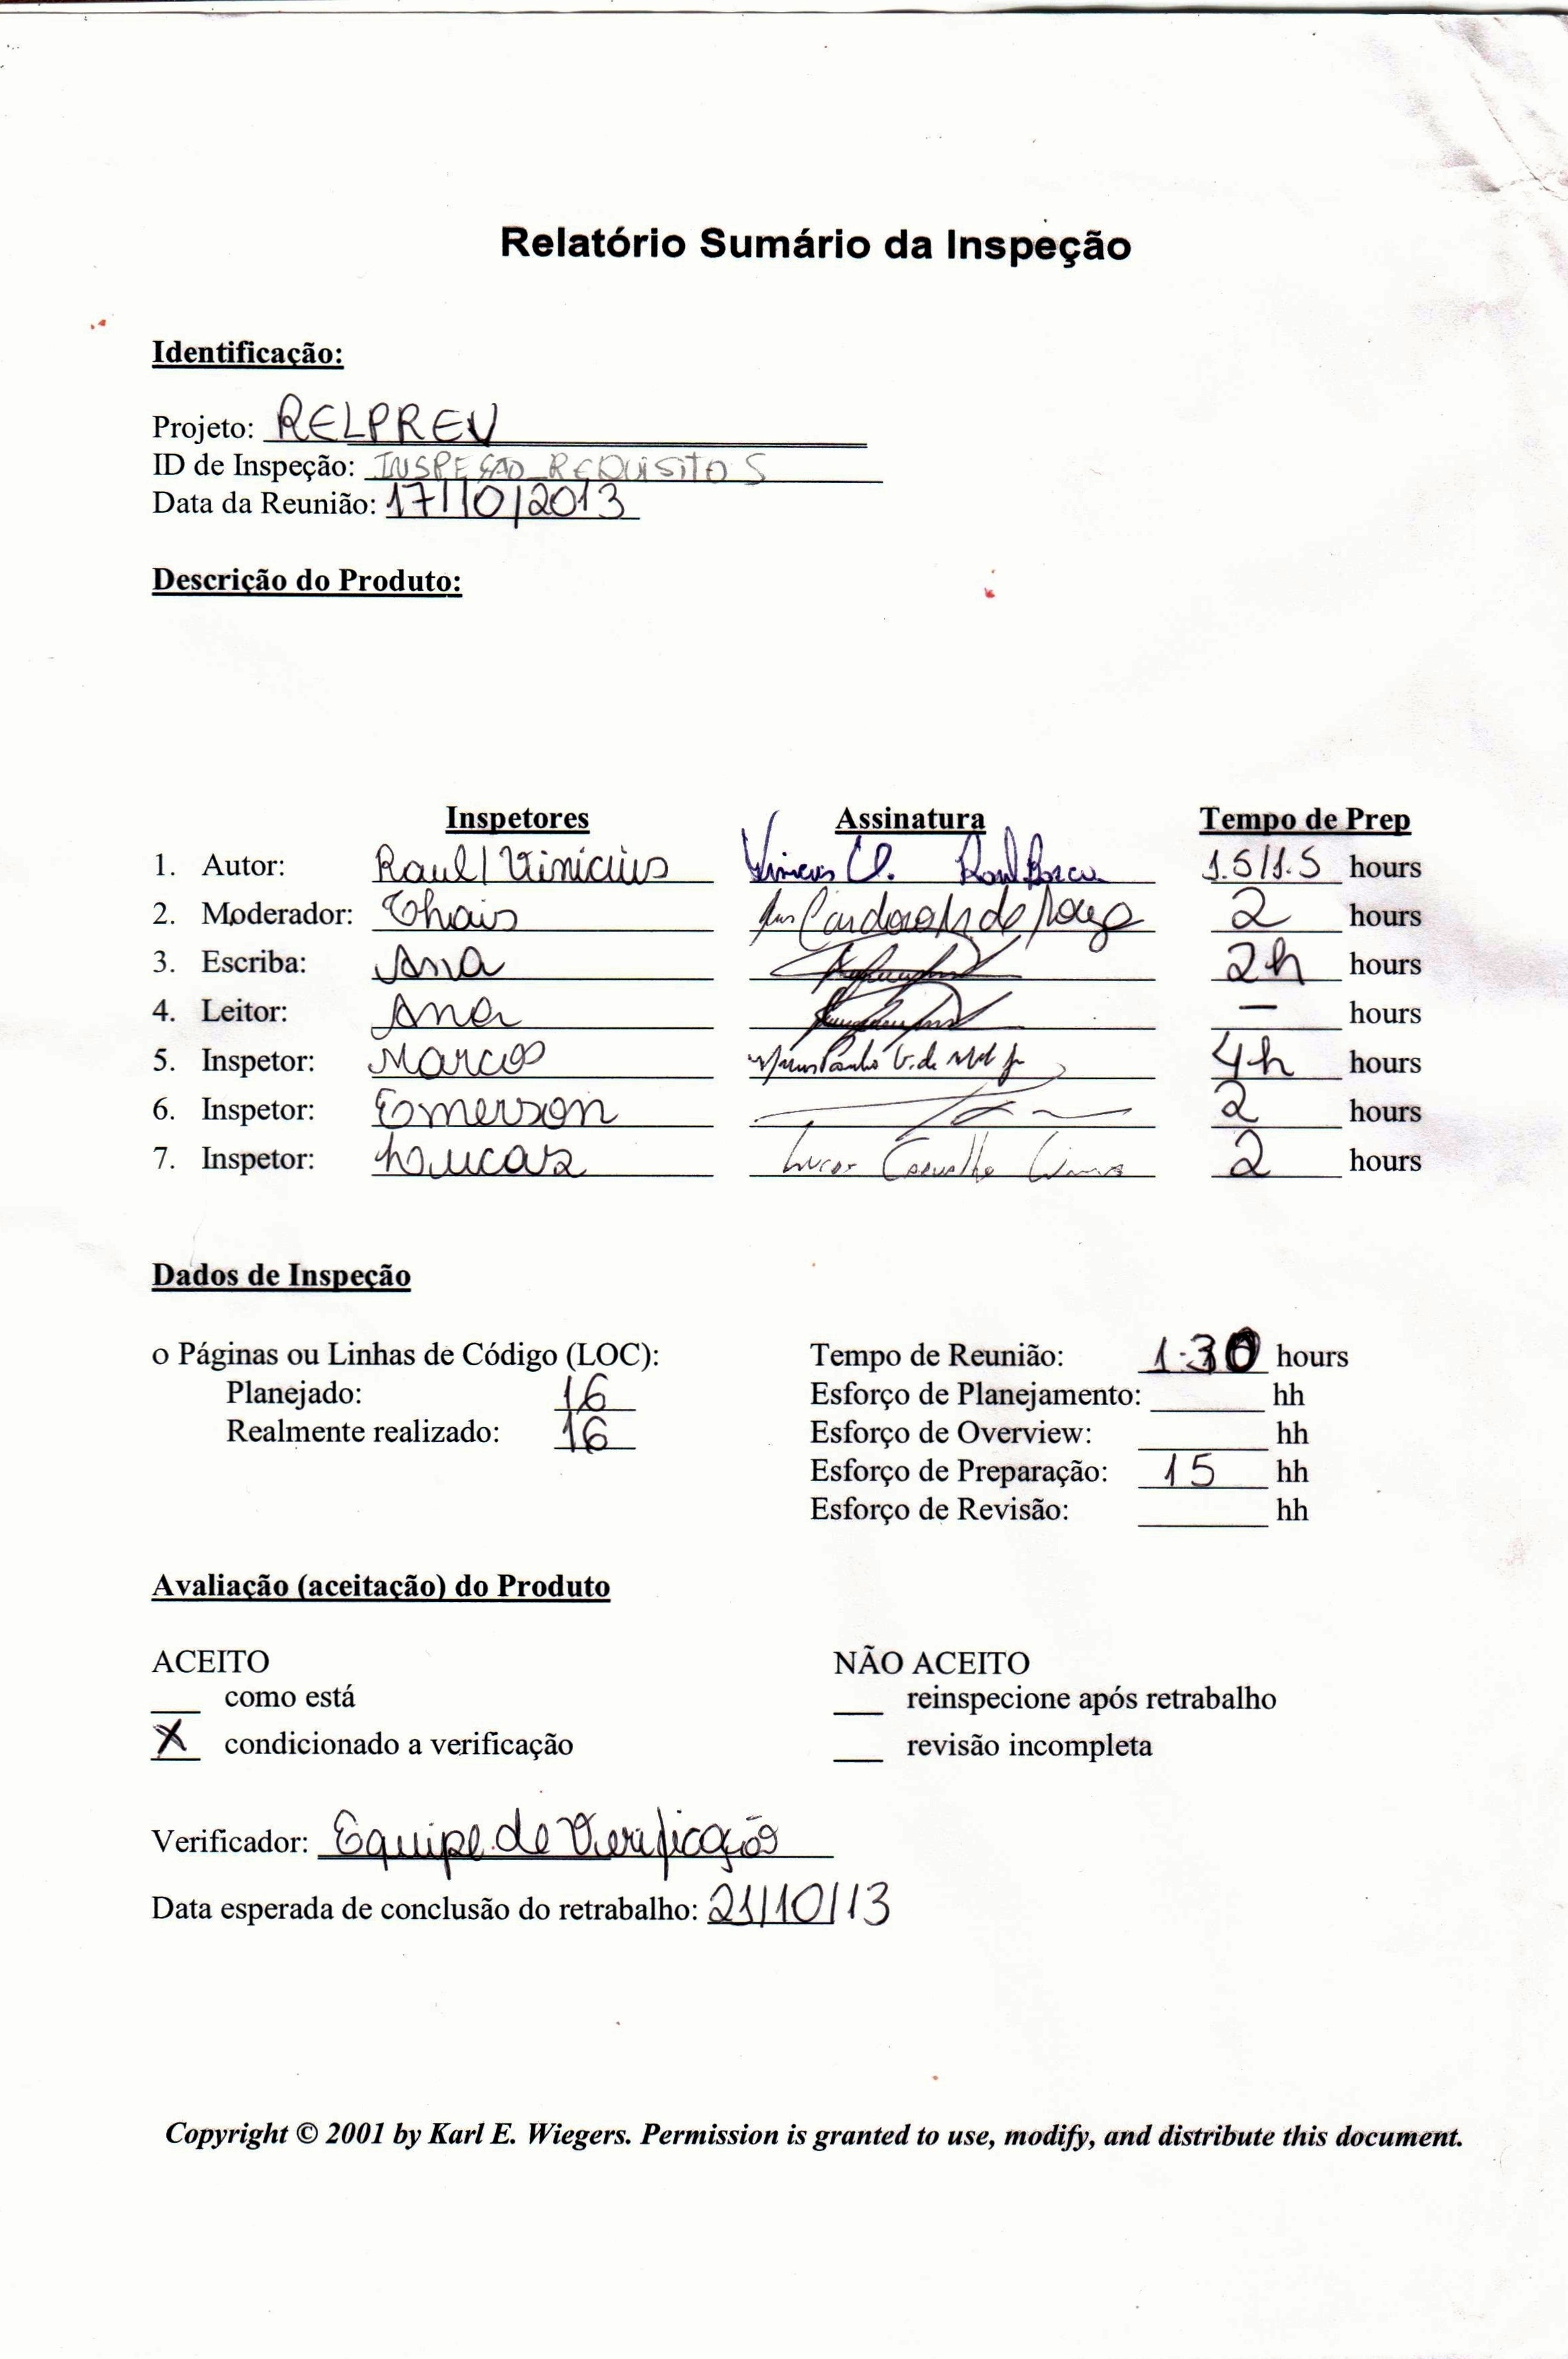 Relatório Sumário da Inspeção
Identificação:
Projeto: RELPREV
ID de Inspeção: INSPEÇÃO_REQUISITOS
Data da Reunião: 17/10/2013
Descrição do Produto:
Inspetores Assinatura Tempo de Prep
1. Autor: Raul/Vinicius Vinicius O. Raul 1.5/1.5 hours
2. Moderador: Thais Cardoso de 2 hours
3. Escriba: Ana 2h hours
4. Leitor: Ana — hours
5. Inspetor: Marcos 4h hours
6. Inspetor: Emerson 2 hours
7. Inspetor: Lucas Lucas Carvalho 2 hours
Dados de Inspeção
o Páginas ou Linhas de Código (LOC): Tempo de Reunião: 1:30 hours
Planejado: 16 Esforço de Planejamento: hh
Realmente realizado: 16 Esforço de Overview: hh
Esforço de Preparação: 15 hh
Esforço de Revisão: hh
Avaliação (aceitação) do Produto
ACEITO NÃO ACEITO
como está reinspecione após retrabalho
X condicionado a verificação revisão incompleta
Verificador: Equipe de Verificação
Data esperada de conclusão do retrabalho: 21/10/13
Copyright © 2001 by Karl E. Wiegers. Permission is granted to use, modify, and distribute this document.